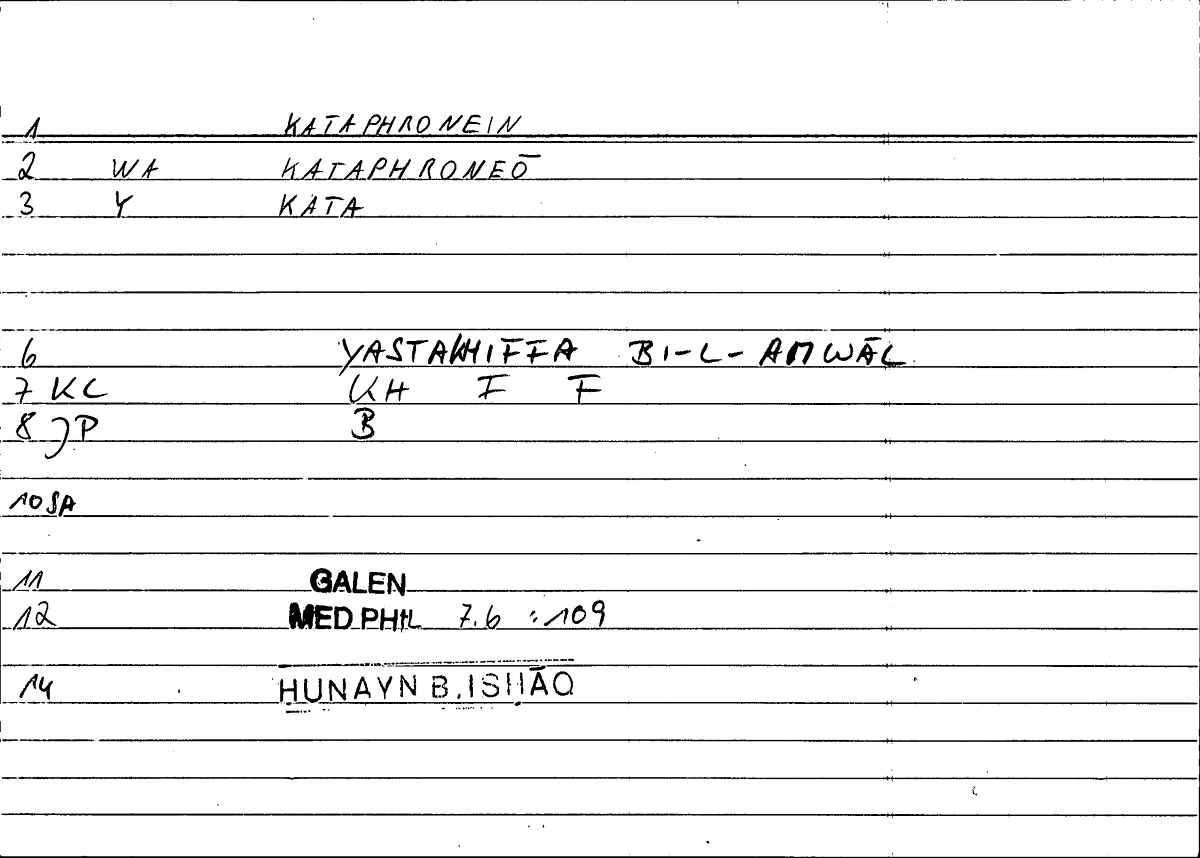 1 KATAPHRONEIN
2 WA KATAPHRONEŌ
3 Y KATA
6 YASTAKHIFFA BI-L-AMWĀL
7 KC KH F F
8 JP B
10 SA
11 GALEN
12 MED PHIL 7.6 :109
14 HUNAYN B. ISHĀQ